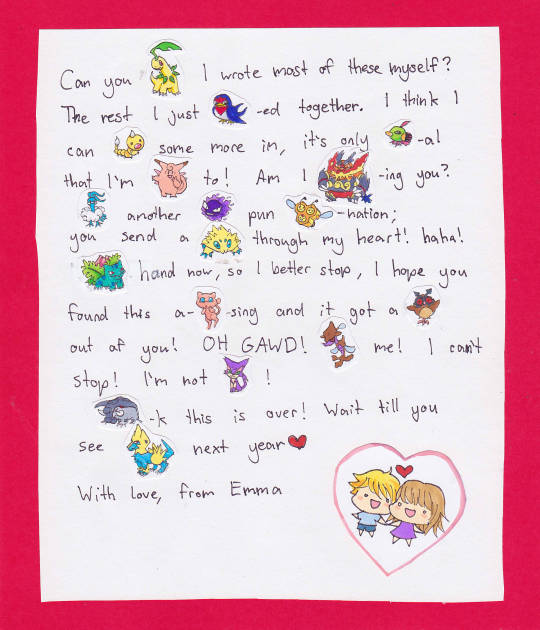 Can you I wrote most of these myself?
The rest I just -ed together. I think I
can some more in, it's only -al
that I'm to! Am I -ing you?
another pun -nation;
you send a through my heart! haha!
hand now, so I better stop, I hope you
found this a- -sing and it got a
out of you! OH GAWD! me! I can't
stop! I'm not !
-k this is over! Wait till you
see next year
With love, from Emma